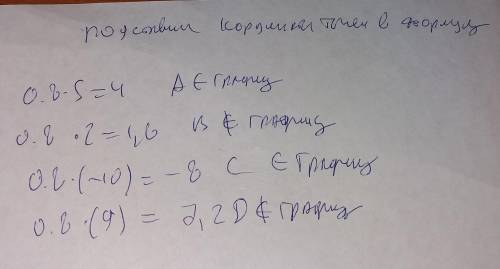 подставим координаты точек в формулу
0.8·5=4 A ∈ графику
0.8·2=1,6 B ∉ графику
0.8·(-10)=-8 C ∈ Графику
0.8·(9)=7,2 D ∉ графику